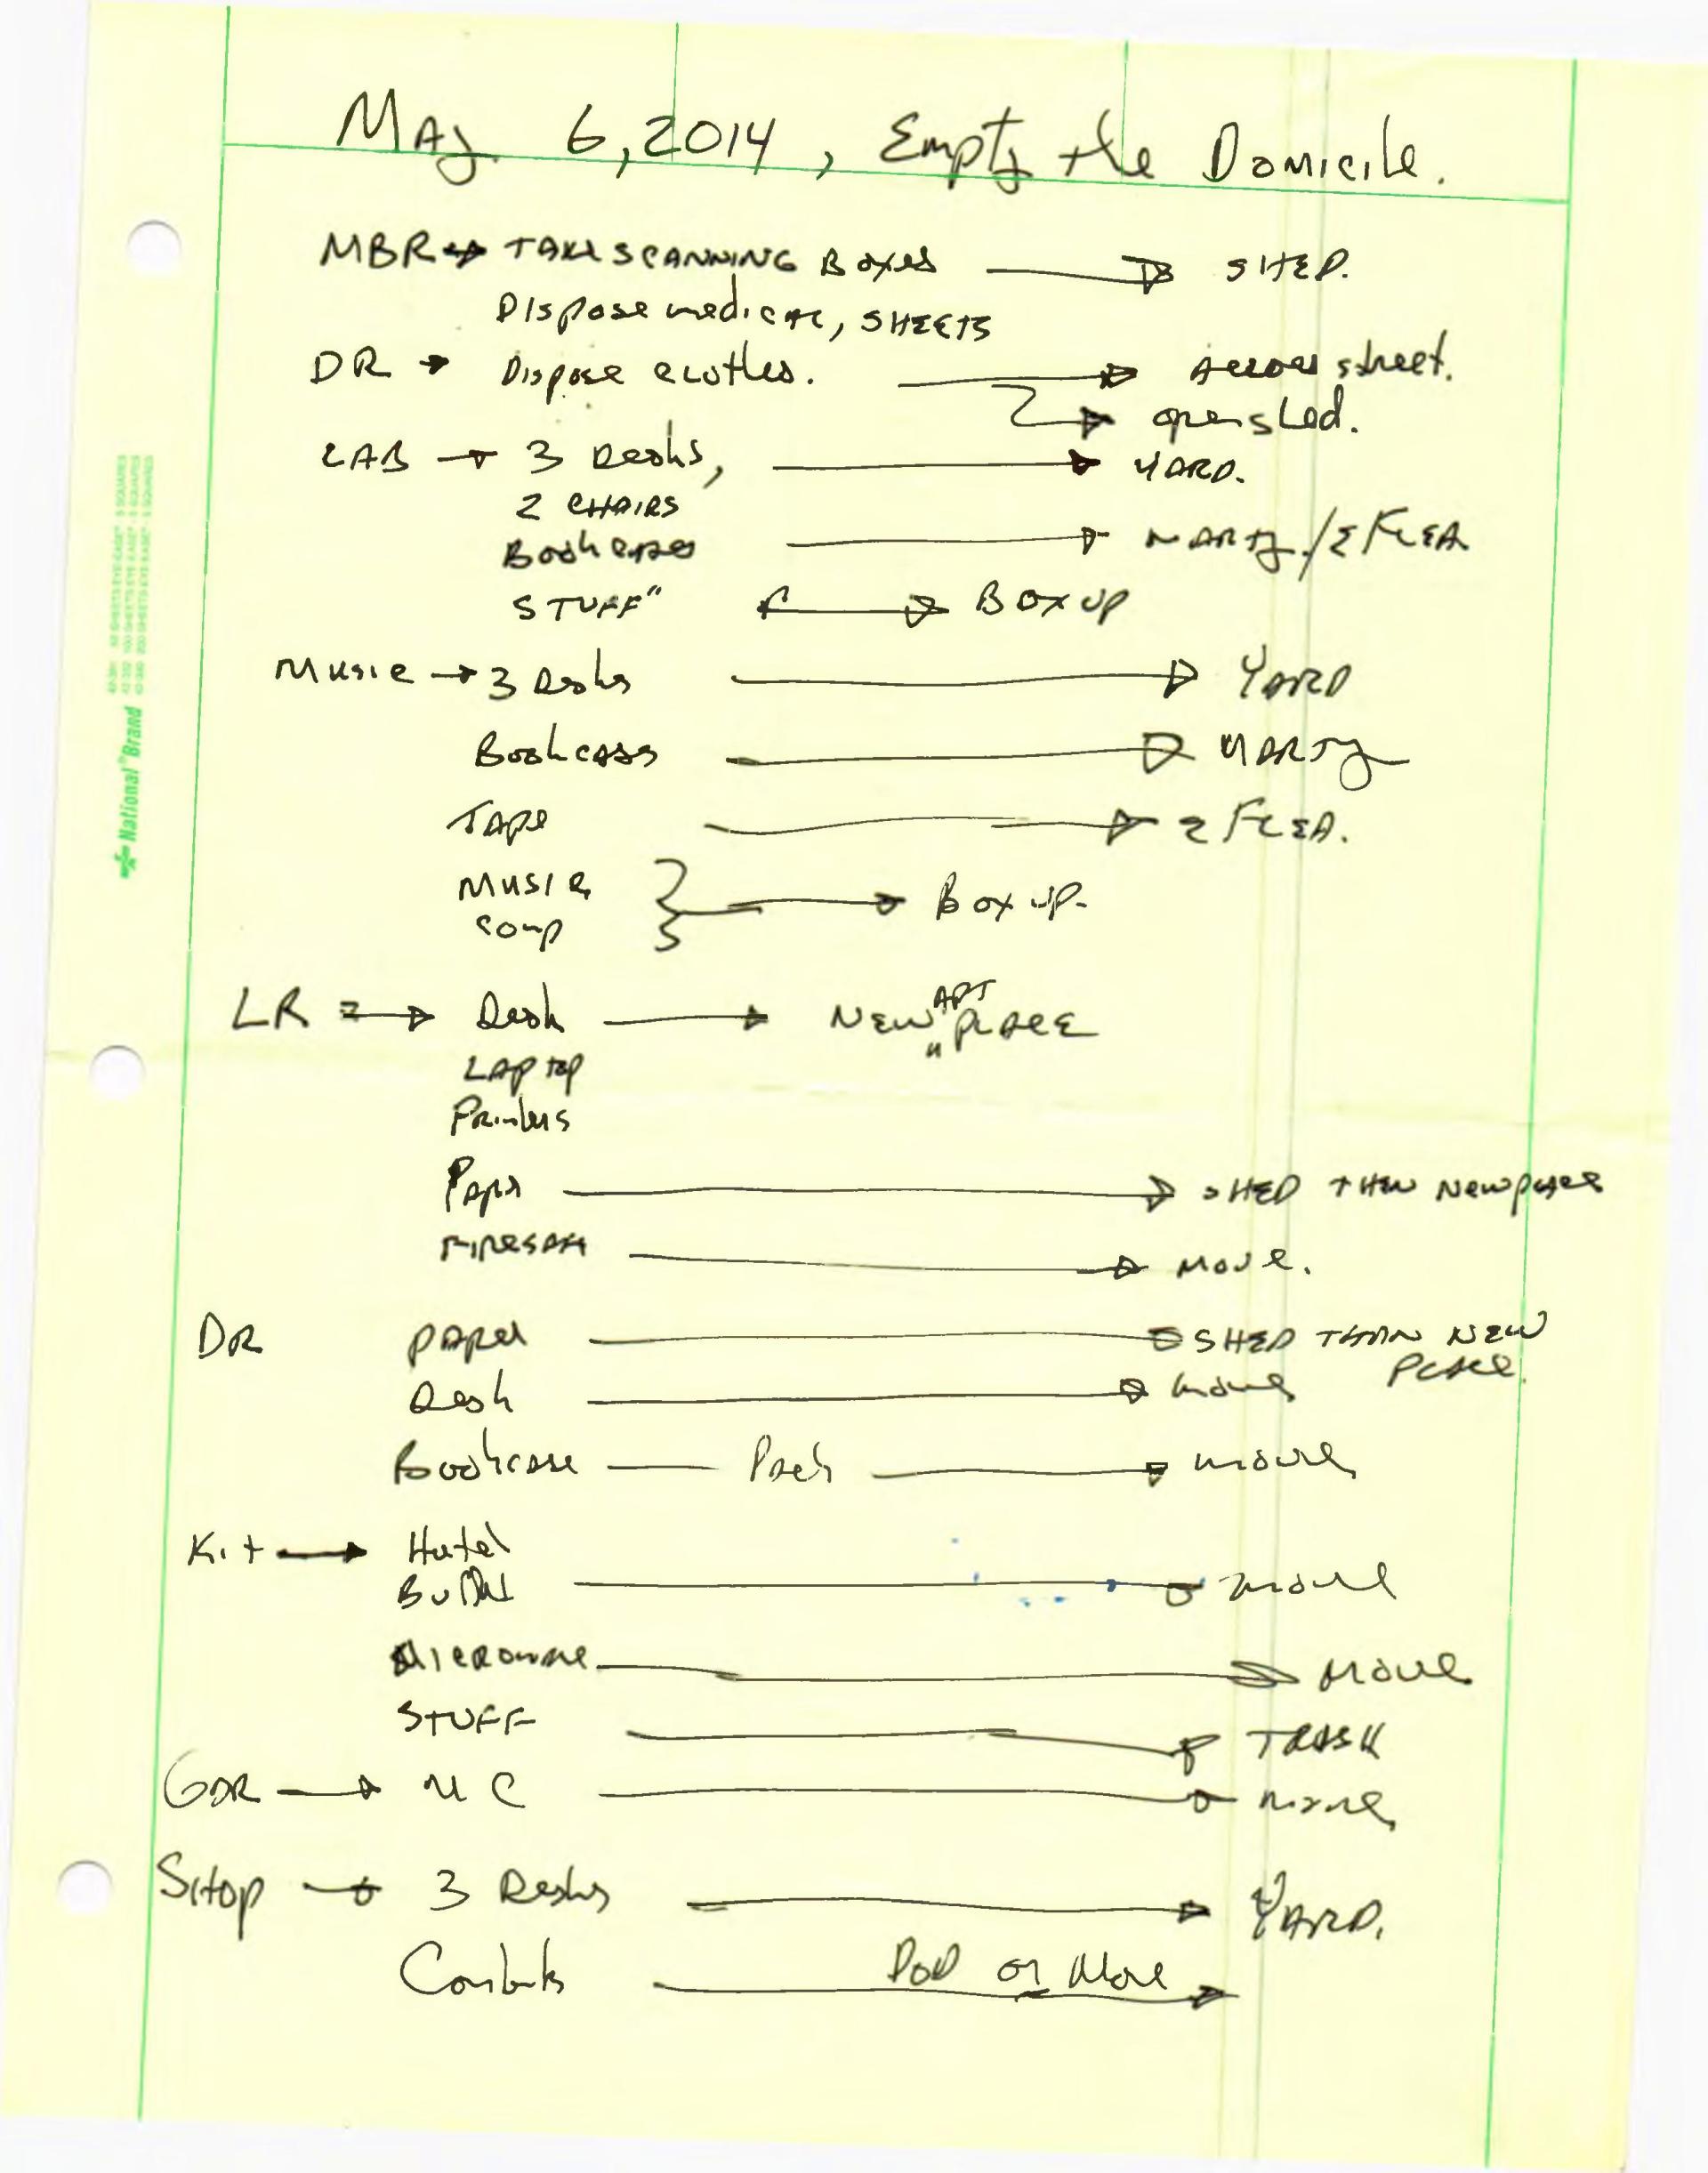 May 6, 2014, Empty the Domicile.
MBR → TAKE SCANNING Boxes → SHED.
Dispose medical, SHEETS
DR → Dispose clothes. → Across street.
→ open shed.
LAB → 3 Desks, → YARD.
2 CHAIRS
Bookcases → MARTY / FLEA
STUFF" ↔ BOX UP
Music → 3 Desks → YARD
Bookcases → MARTY
TAPE → FLEA.
MUSIC
COMP } → Box up.
LR → Desk → NEW APT PLACE
LAPTOP
Printers
Paper → SHED THEN New place
FIRESAFE → Move.
DR PAPER → SHED THEN NEW
PLACE.
Desk → move
Bookcase — Pack → move
Kit → Hutch
Buffet → move
Microwave → Move
STUFF → TRASH
GAR → MC → move
SHOP → 3 Desks → YARD.
Contents POD or Move →
National Brand